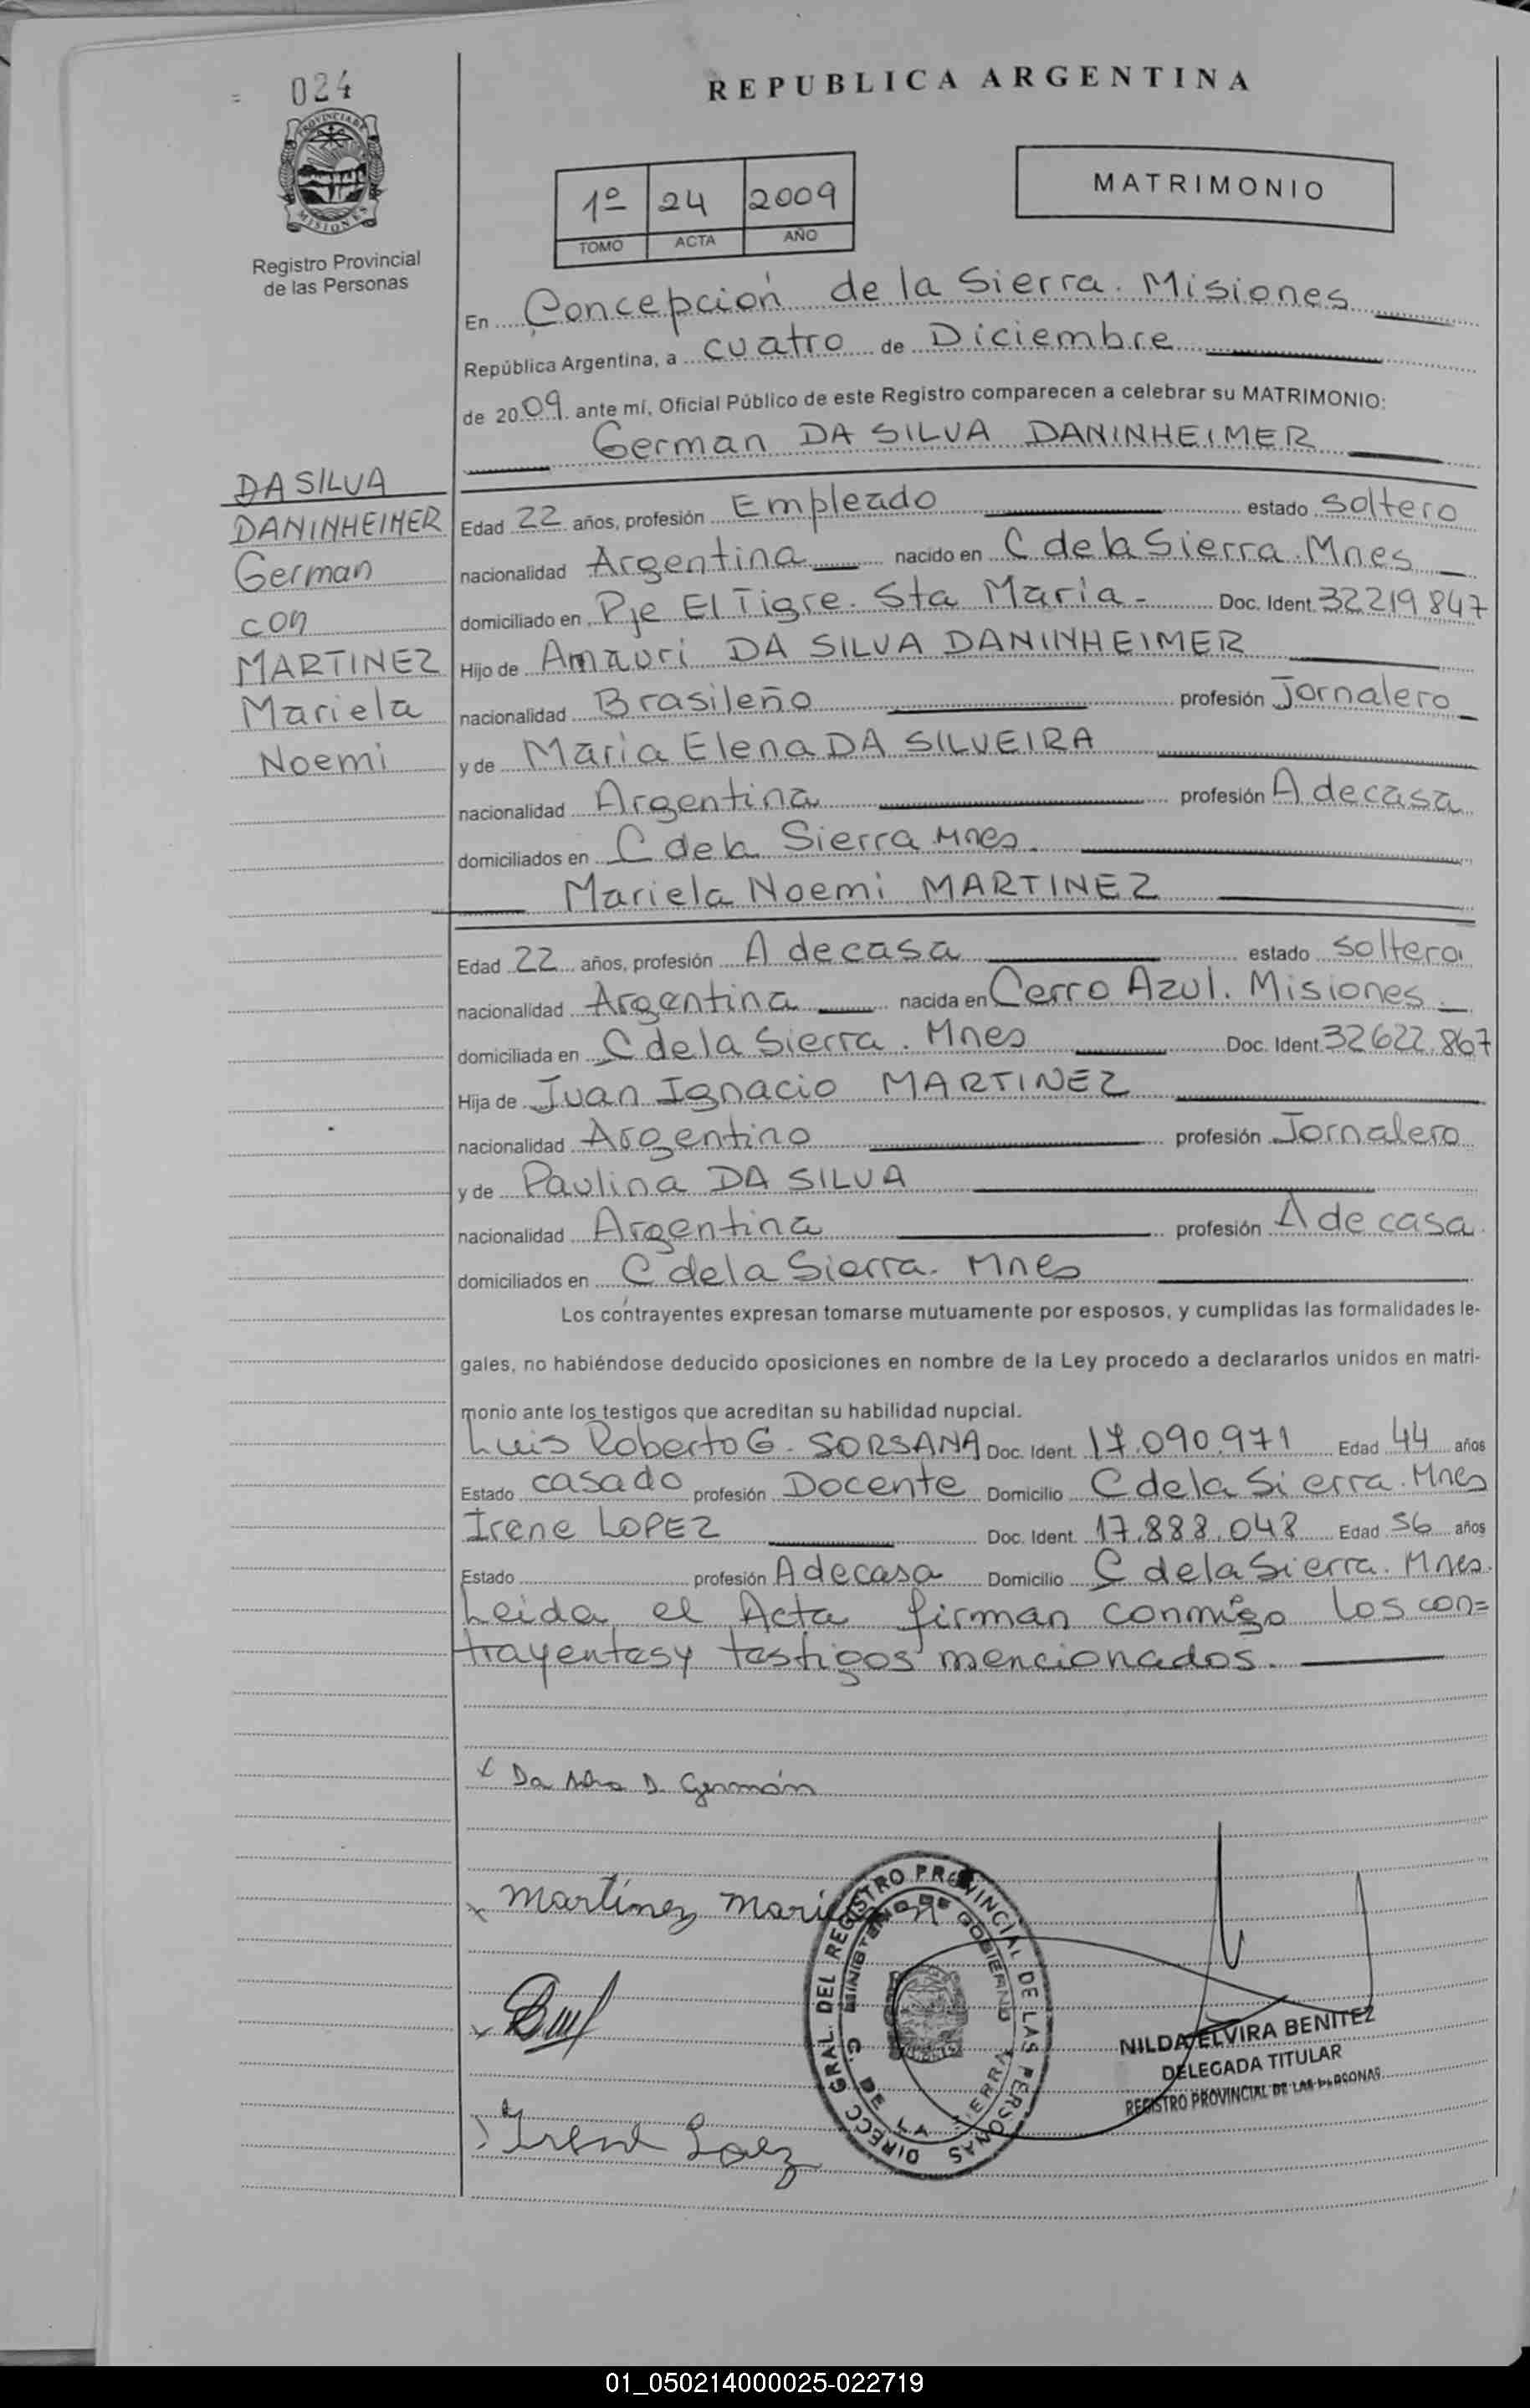 024
PROVINCIA DE
MISIONES
Registro Provincial
de las Personas
REPUBLICA ARGENTINA
1º 24 2009
TOMO ACTA AÑO
MATRIMONIO
En Concepción de la Sierra. Misiones
República Argentina, a cuatro de Diciembre
de 2009. ante mí, Oficial Público de este Registro comparecen a celebrar su MATRIMONIO:
German DA SILVA DANINHEIMER
DA SILVA
DANINHEIMER
German
con
MARTINEZ
Mariela
Noemi
Edad 22 años, profesión Empleado estado soltero
nacionalidad Argentina nacido en C de la Sierra. Mnes
domiciliado en Pje El Tigre. Sta Maria- Doc. Ident. 32219847
Hijo de Amauri DA SILVA DANINHEIMER
nacionalidad Brasileño profesión Jornalero
y de Maria Elena DA SILVEIRA
nacionalidad Argentina profesión A de casa
domiciliados en C de la Sierra Mnes.
Mariela Noemi MARTINEZ
Edad 22 años, profesión A de casa estado soltera
nacionalidad Argentina nacida en Cerro Azul. Misiones
domiciliada en C de la Sierra. Mnes Doc. Ident. 32622.867
Hija de Juan Ignacio MARTINEZ
nacionalidad Argentino profesión Jornalero
y de Paulina DA SILVA
nacionalidad Argentina profesión A de casa
domiciliados en C de la Sierra. Mnes
Los contrayentes expresan tomarse mutuamente por esposos, y cumplidas las formalidades le-
gales, no habiéndose deducido oposiciones en nombre de la Ley procedo a declararlos unidos en matri-
monio ante los testigos que acreditan su habilidad nupcial.
Luis Roberto G. SORSANA Doc. Ident. 17.090.971 Edad 44 años
Estado casado profesión Docente Domicilio C de la Sierra. Mnes
Irene LOPEZ Doc. Ident. 17.888.048 Edad 56 años
Estado profesión A de casa Domicilio C de la Sierra. Mnes.
Leida el Acta firman conmigo los con=
trayentes y testigos mencionados.
x Da Silva D. Germán
x Martínez Mariela N
Irene Lopez
DIRECC GRAL. DEL REGISTRO PROVINCIAL DE LAS PERSONAS
MINISTERIO DE GOBIERNO
C. DE LA SIERRA
NILDA ELVIRA BENITEZ
DELEGADA TITULAR
REGISTRO PROVINCIAL DE LAS PERSONAS
01_050214000025-022719